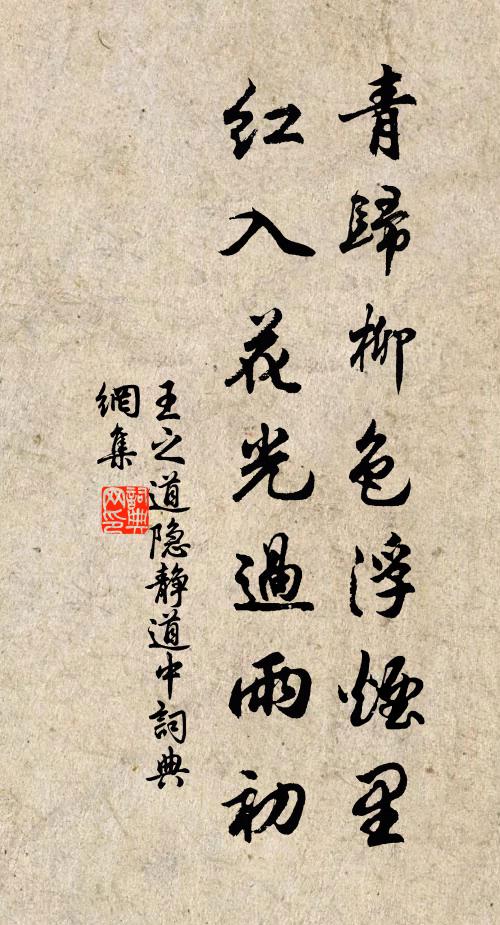 青歸柳色浮煙里
紅入花光過雨初
王之道隐静道中詞典
網集
詞典
网印